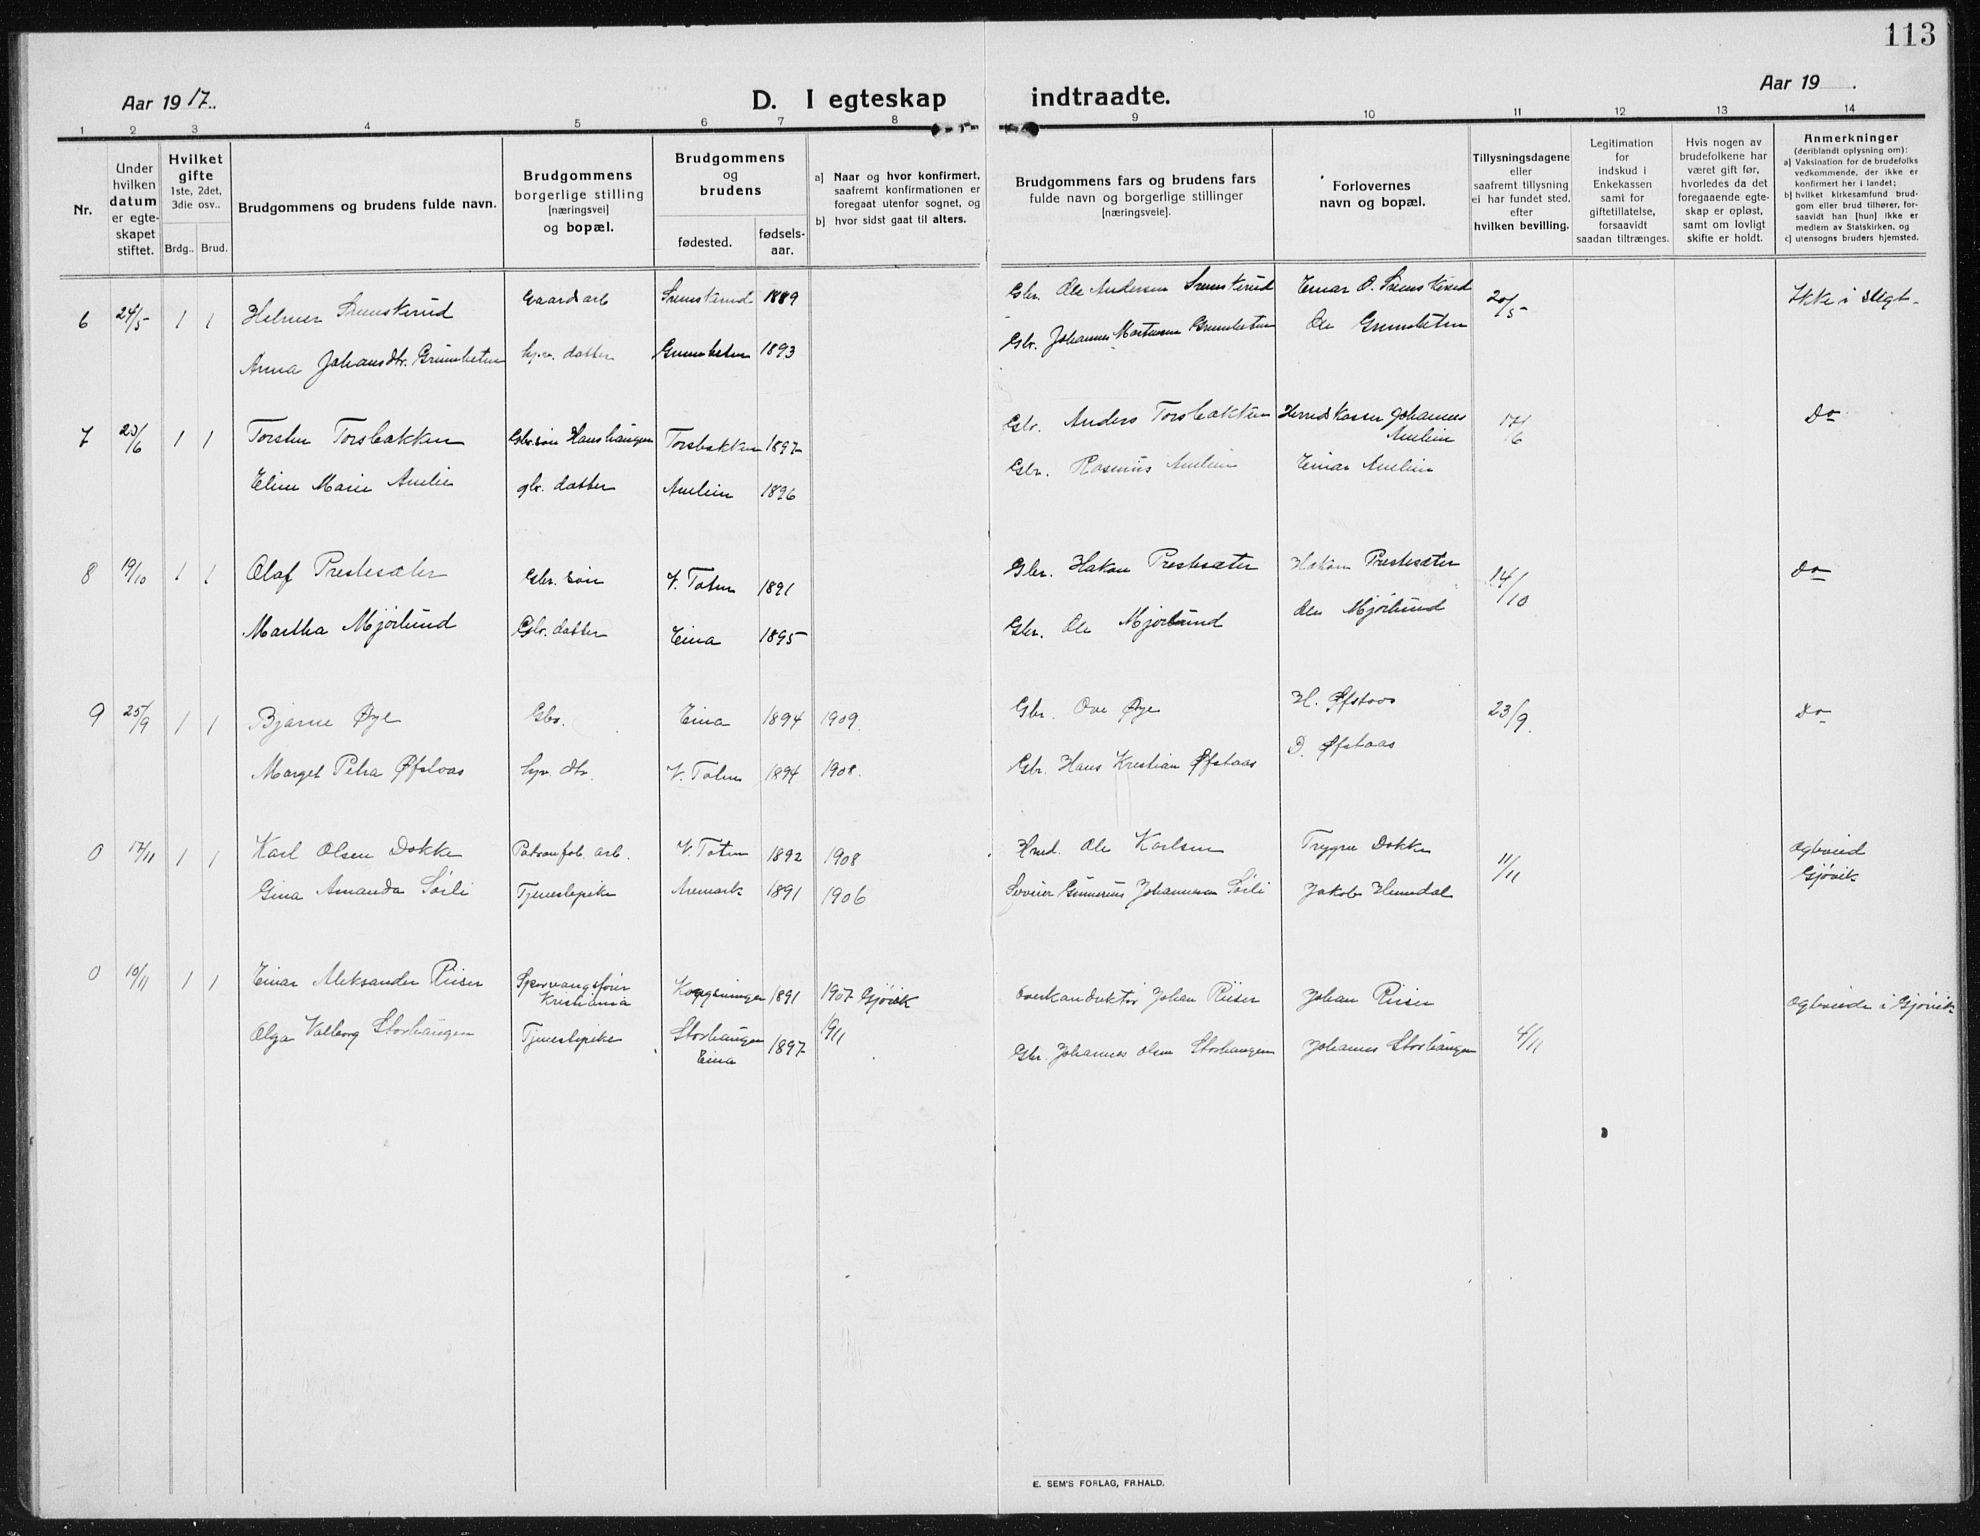 113
Aar 1917.
D. I egteskap indtraadte.
Aar 19
1 2 3 4 5 6 7 8 9 10 11 12 13 14
Nr.
Under hvilken datum er egteskapet stiftet.
Hvilket gifte 1ste, 2det, 3die osv..
Brdg.. Brud.
Brudgommens og brudens fulde navn.
Brudgommens borgerlige stilling [næringsvei] og bopæl.
Brudgommens og brudens
fødested.
fødselsaar.
a] Naar og hvor konfirmert, saafremt konfirmationen er foregaat utenfor sognet, og
b) hvor sidst gaat til alters.
Brudgommens fars og brudens fars fulde navn og borgerlige stillinger [næringsveie].
Forlovernes navn og bopæl.
Tillysningsdagene eller saafremt tillysning ei har fundet sted, efter hvilken bevilling.
Legitimation for indskud i Enkekassen samt for giftetillatelse, forsaavidt saadan tiltrænges.
Hvis nogen av brudefolkene har været gift før, hvorledes da det foregaaende egteskap er opløst, samt om lovligt skifte er holdt.
Anmerkninger (deriblandt oplysning om):
a) Vaksination for de brudefolks vedkommende, der ikke er konfirmert her i landet;
b) hvilket kirkesamfund brudgom eller brud tilhører, forsaavidt han [hun] ikke er medlem av Statskirken, og
c) utensogns bruders hjemsted.
6 24/5 1 1 Helmer Gaardarb 1889 Gbr. Ole Andersen Einar O. 20/5 Ikke i slegt
Anna Johansdtr. datter 1893 Gbr. Johannes Ole
7 23/6 1 1 Torsten Torsbakken Gbr. søn Hanshaugen Torsbakken 1897 Gbr. Anders Torsbakken Herredskasser Johannes Amlien 17/6 Do
Eline Marie Amlie gbr. datter Amlien 1896 Gbr. Rasmus Amlien Einar Amlien
8 19/10 1 1 Olaf Prestesæter Gbr. søn V. Toten 1891 Gbr. Hakon Prestesæter Hakon Prestesæter 14/10 Do
Martha Mjørlund Gbr. datter Eina 1895 Gbr. Ole Mjørlund Ole Mjørlund
9 25/9 1 1 Bjarne Øye Gbr. Eina 1894 1909. Gbr. Ove Øye H. Øfstaas 23/9 Do
Marget Petra Øfstaas dtr. V. Toten 1894 1908. Gbr. Hans Kristian Øfstaas D. Øfstaas
0 17/11 1 1 Karl Olsen Dokke Patronfab. arb. V. Toten 1892 1908 Hmd. Ole Karlsen Trygve Dokke 11/11 Ogleveid Gjøvik
Gina Amanda Søili Tjenestepike Aremark 1891 1906 Gunnerius Johannesen Søili Jakob Hemdal
0 10/11 1 1 Einar Aleksander Riiser Sporvangsfører Kristiania 1891 1907 Gjøvik Overkonduktør Johan Riiser Johan Riiser Ogleveide i Gjøvik
Olga Valborg Storhaugen Tjenestepike Storhaugen Eina 1897 1911 Gbr. Johannes Olsen Storhaugen Johannes Storhaugen 4/11
E. SEM'S FORLAG, FR.HALD.